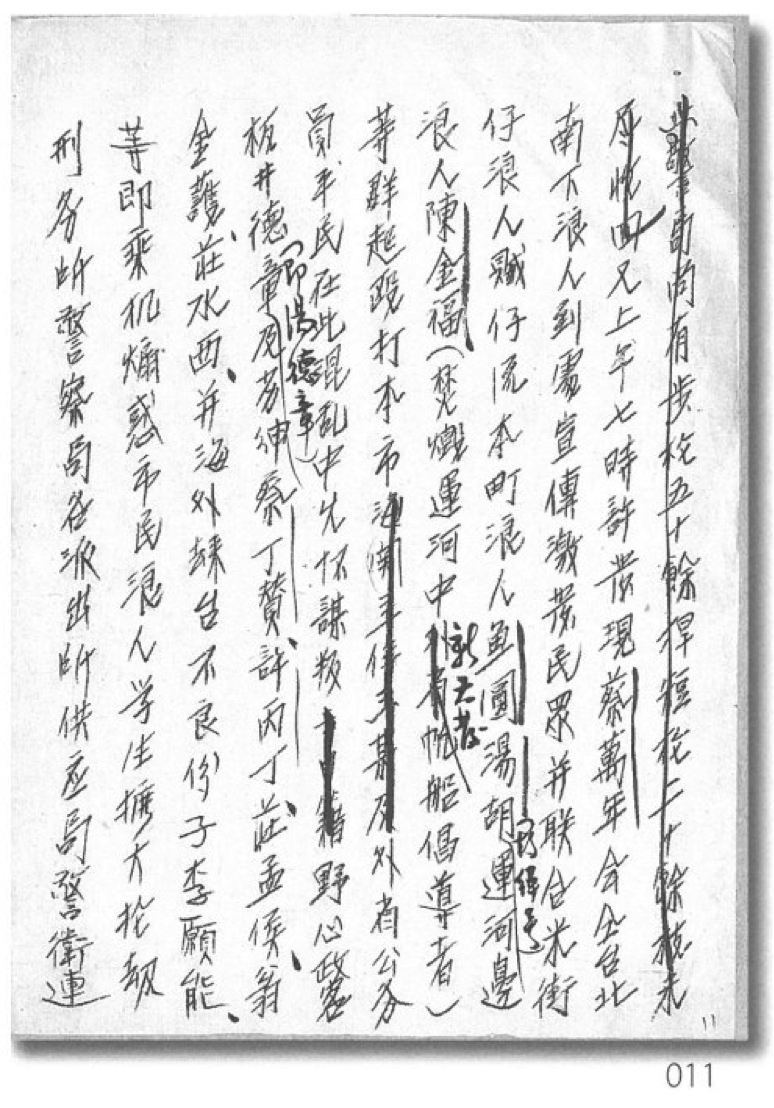 警局尚有步枪五十餘捍短枪二十餘枝未
尽收回又上午七時許発現蔡萬年会仝台北
南下浪人到處宣傳激発民眾并联合米街
仔浪人贓仔流本町浪人魚圓湯胡運河邊
浪人陳金福(焚燬運河中帆船倡導者)
新大发
民绰号
等群起毆打本市及外省公务
員平民在此混乱中久怀謀叛野心政客
板井德章及劣绅蔡丁贊、許丙丁、莊孟侯、翁
(即湯德章)
金護、莊水西、并海外歸台不良份子李願能、
等即乘机煽惑市民浪人学生擴大抢刼
刑务所警察局各派出所供应局警衛連
11
011